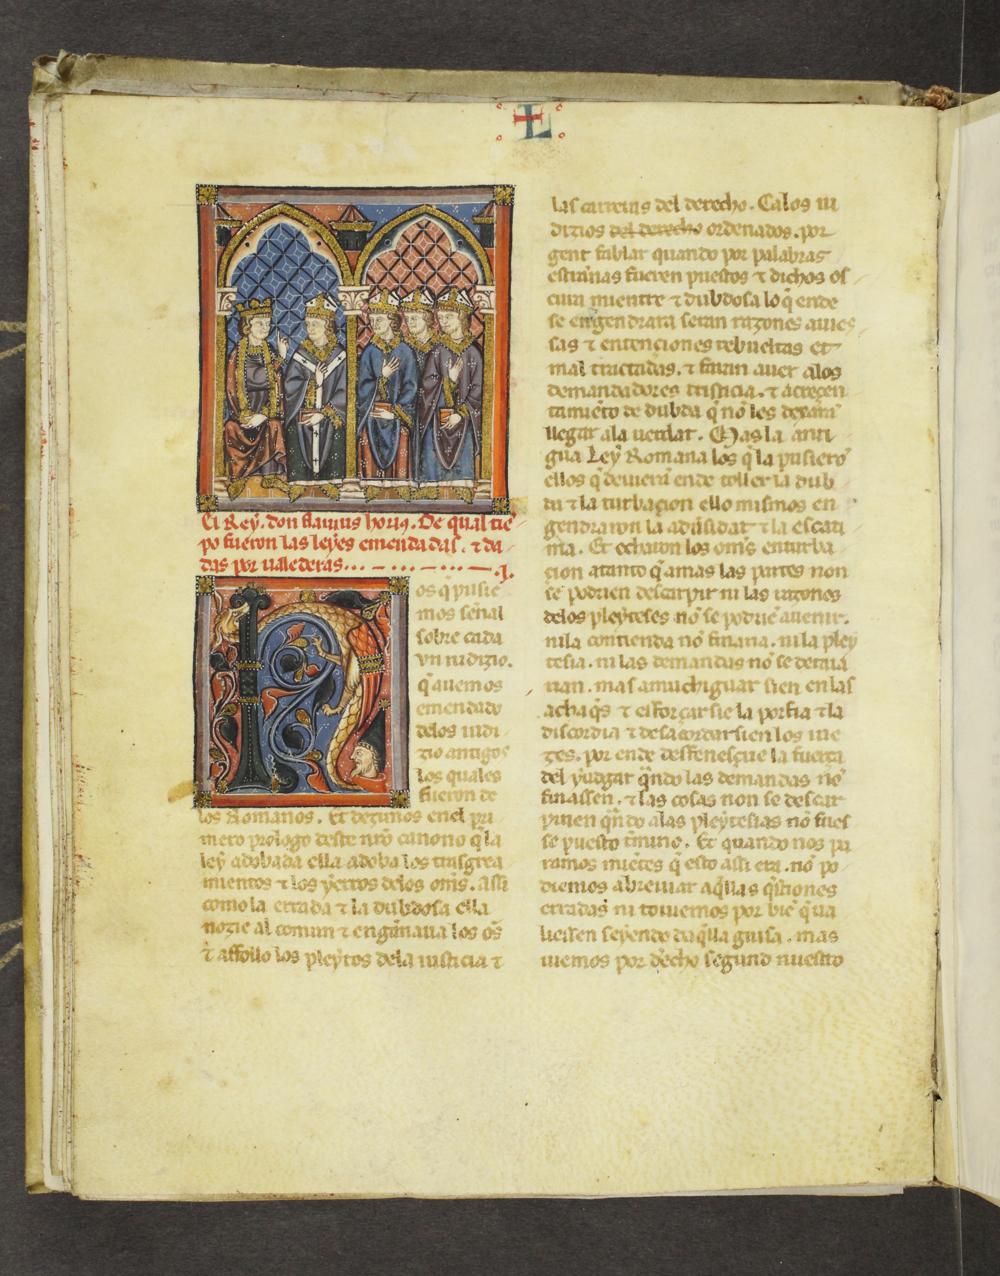 E
El Rey. don flauius horiꝯ. De qual tiē
po fueron las leyes emendadas. ⁊ da
das por ualederas... — ... — ... — .I.
os q̄ pusie
mos señal
sobre cada
vn iudizio.
q̄ auemos
emendado
delos iudi
zio antigos
los quales
fueron de
los Romanos. Et dezimos enel pri
mero prologo deste nr̄o canono q̄ la
ley adobada ella adoba los trasgrea
mientos ⁊ los yerros delos om̄s. Assi
como la errada ⁊ la dubdosa ella
nozie al comun ⁊ engānaua los os̄
⁊ affollo los pleytos dela iusticia ⁊
las carreras del derecho. Ca los iu
dizios del derecho ordenados. por
gent fablar quando por palabras
estranas fueren puestos ⁊ dichos os
cura mientre ⁊ dubdosa lo q̄ ende
se engendrara seran razones auies
sas ⁊ entenciones rebueltas et
mal tractadas. ⁊ faran auer alos
demandadores tristicia. ⁊ acrecen
tamiēto de dubda q̄ nō les dexara
llegar ala uerdat. Mas la anti
gua Ley Romana los q̄ la pusierō
ellos q̄ deuierā ende toller la dub
da ⁊ la turbaçion ello mismos en
gendraron la aduersidat ⁊ la escati
ma. Et echaron los om̄s enturba
çion atanto q̄ amas las partes non
se podrien descarpir ni las razones
delos pleyteses nō se podriē auenir.
ni la contienda nō finaria. ni la pley
tesia. ni las demandas nō se derra
rian. mas amuchiguar sien en las
achaq̄s ⁊ esforçar sie la porfia ⁊ la
discordia ⁊ desacordar sien los iue
zes. por ende desfenesçie la fuerça
del yudgar q̄ndo las demandas nō
finassen. ⁊ las cosas non se descar
pinen q̄ndo alas pleytesias nō fues
se puesto t̄mino. Et quando nos pa
ramos mietes q̄ esto assi era. nō po
diemos abreuiar aq̄llas q̄stiones
erradas ni touiemos por biē q̄ ua
liessen seyendo daq̄lla guisa. mas
uiemos por d̄echo segund nuestro